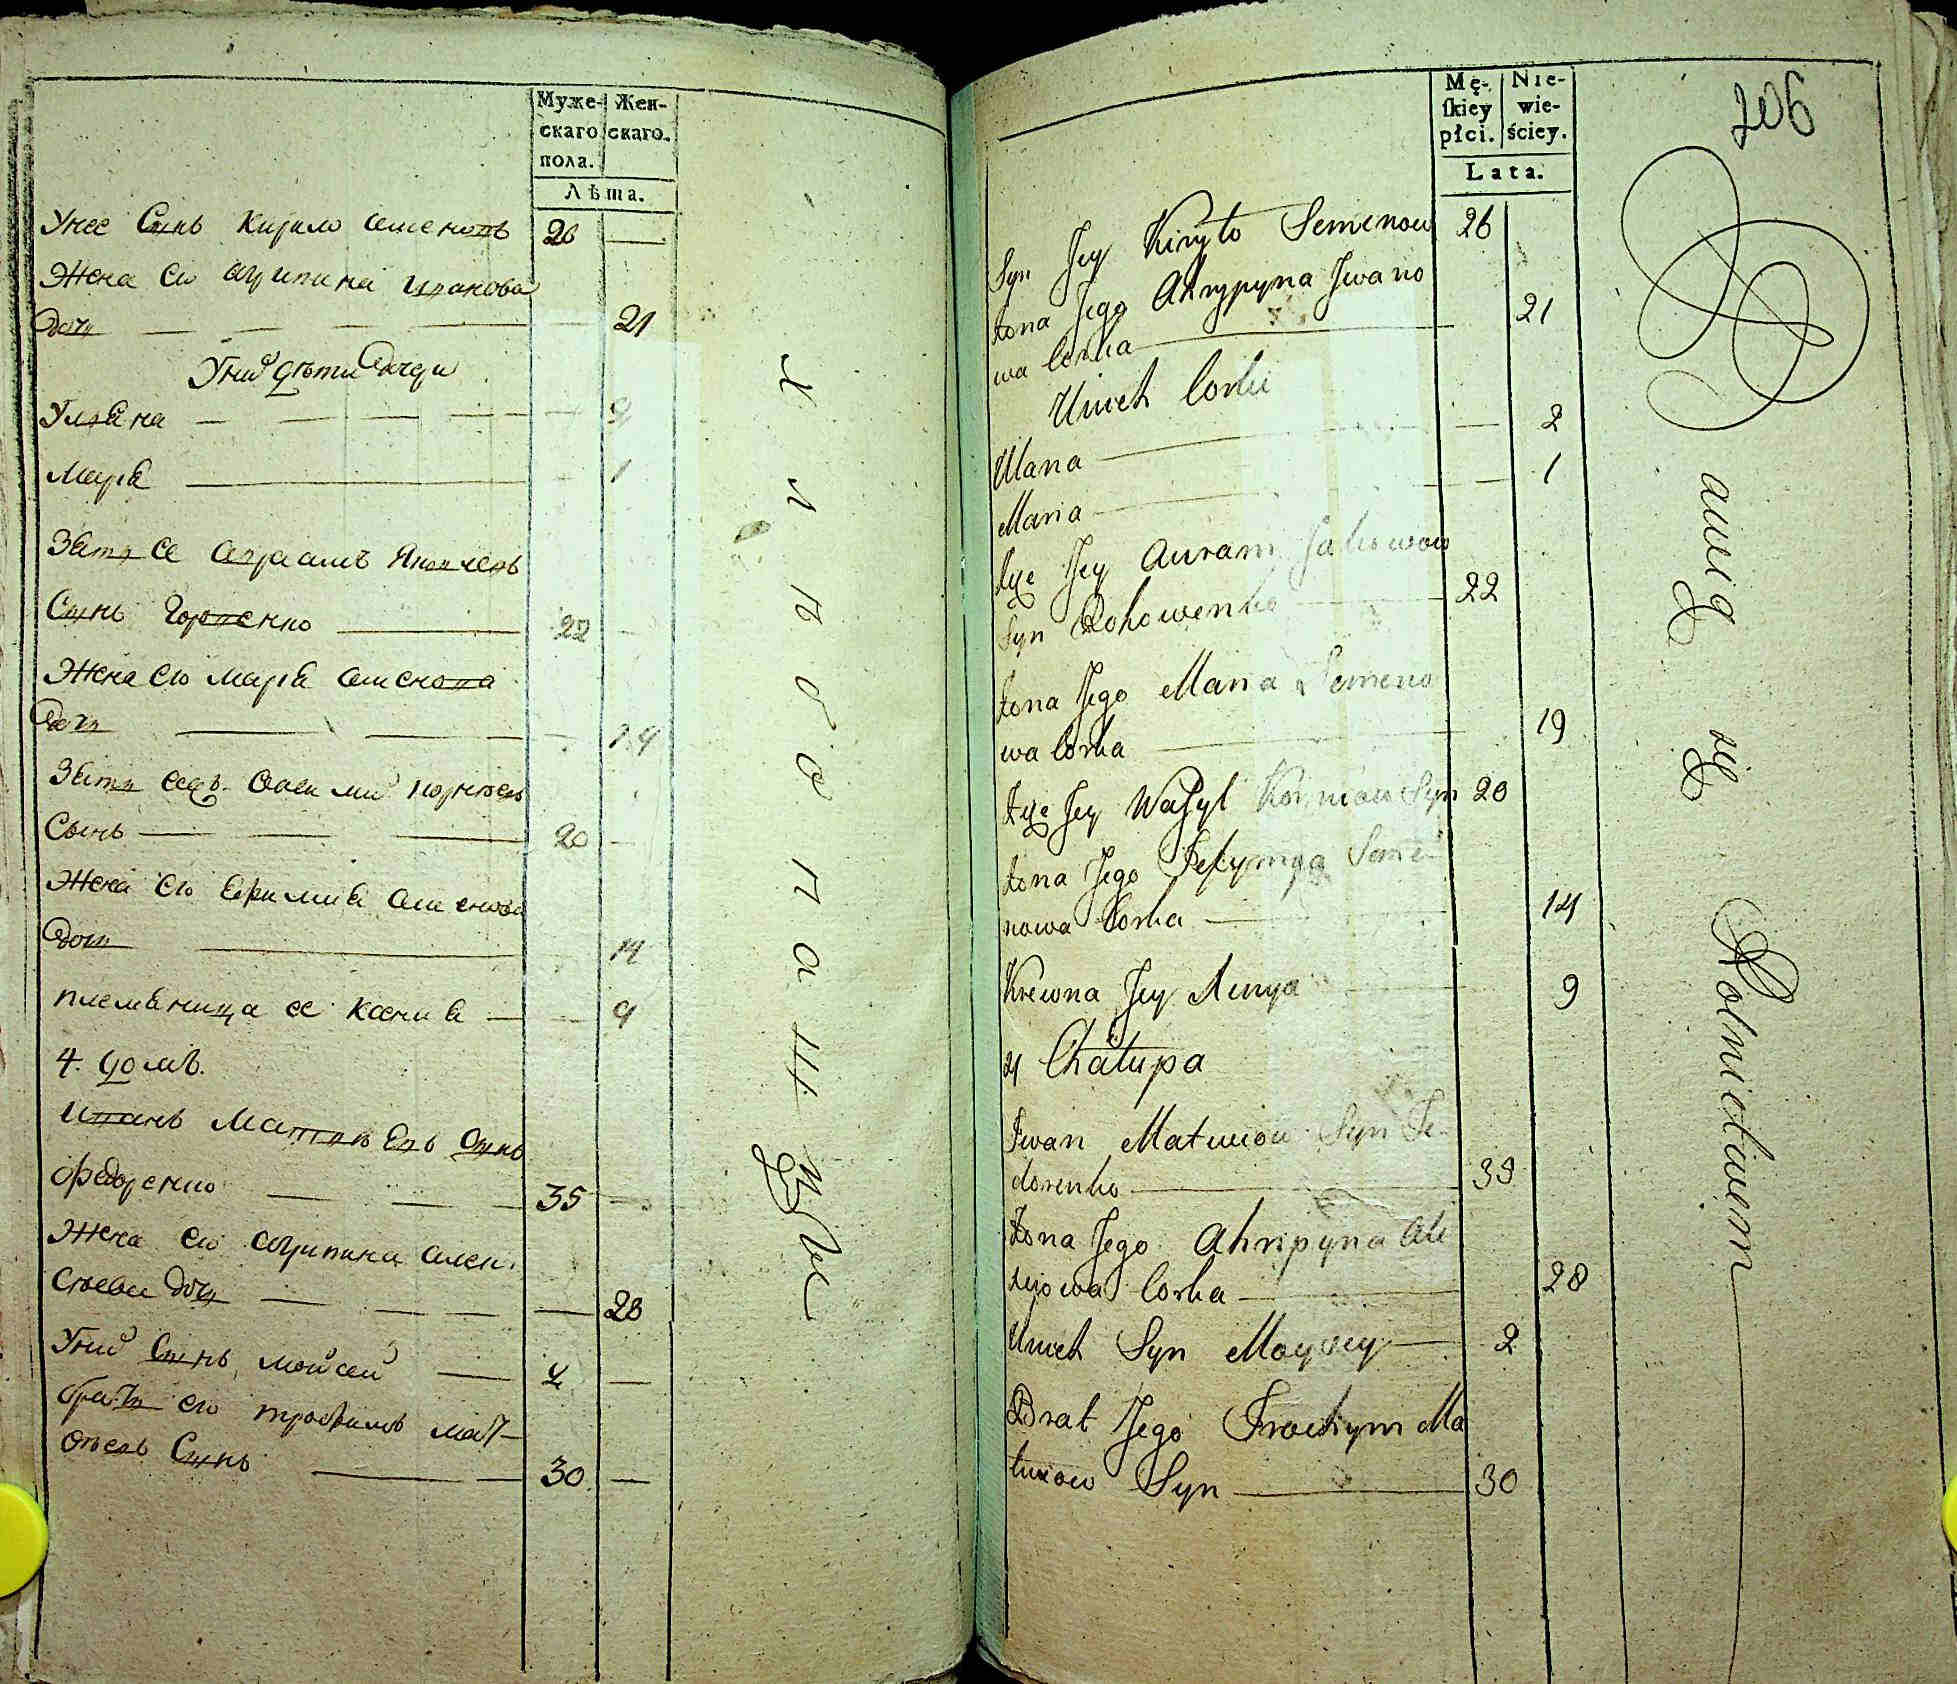 Муже-
скаго
пола.
Жен-
скаго.
Лѣта.
Унее Сынь Кирило Семеновь 26 —
Жена его Агрипина Иванова
Дочь — — — — 21
Уних дѣти Дочери
Уляна — — — — 2
Марія — 1
Зять ее Авраамъ Яковлевь
Сынь — 22 —
Жена его Марія Семенова
Дочь — — 19
Зять Василий Корнѣевь
Сынь — — — 20 —
Жена его Ефимия Семенова
Дочь — 14
племяница ее Ксения — 9
4. домъ.
Иванъ Матвѣевъ Сынь
Федоренко — — — 35 —
Жена его Агрипина Алек-
сѣева Дочь — — — — 28
Уних Сынь Мойсей — 2 —
братъ его трофимъ мат-
вѣевь Сынь — 30 —
хлѣбопаш
206
Mę-
ſkiey
płci.
Nie-
wie-
ściey.
Lata.
Syn Jey Kiryło Semenow 26
Żona Jego Ahrypyna Iwano
wa Corka — 21
Unich Corki
Ulana — 2
Maria — 1
Zięć Jey Auram Jakowow
Syn — 22
Żona Jego Maria Semeno
wa Corka — 19
Zięć Jey Wasyl Korniow Syn 20
Żona Jego Seme-
nowa Corka — 14
Krewna Jey — 9
4 Chałupa
Iwan Matwiow Syn Fe-
dorenko — 35
Żona Jego Ahripyna Ale
xiowa Corka — 28
Unich Syn Moysey — 2
Brat Jego Trochym Ma
twiow Syn — 30
Bawią się Rolnictwem